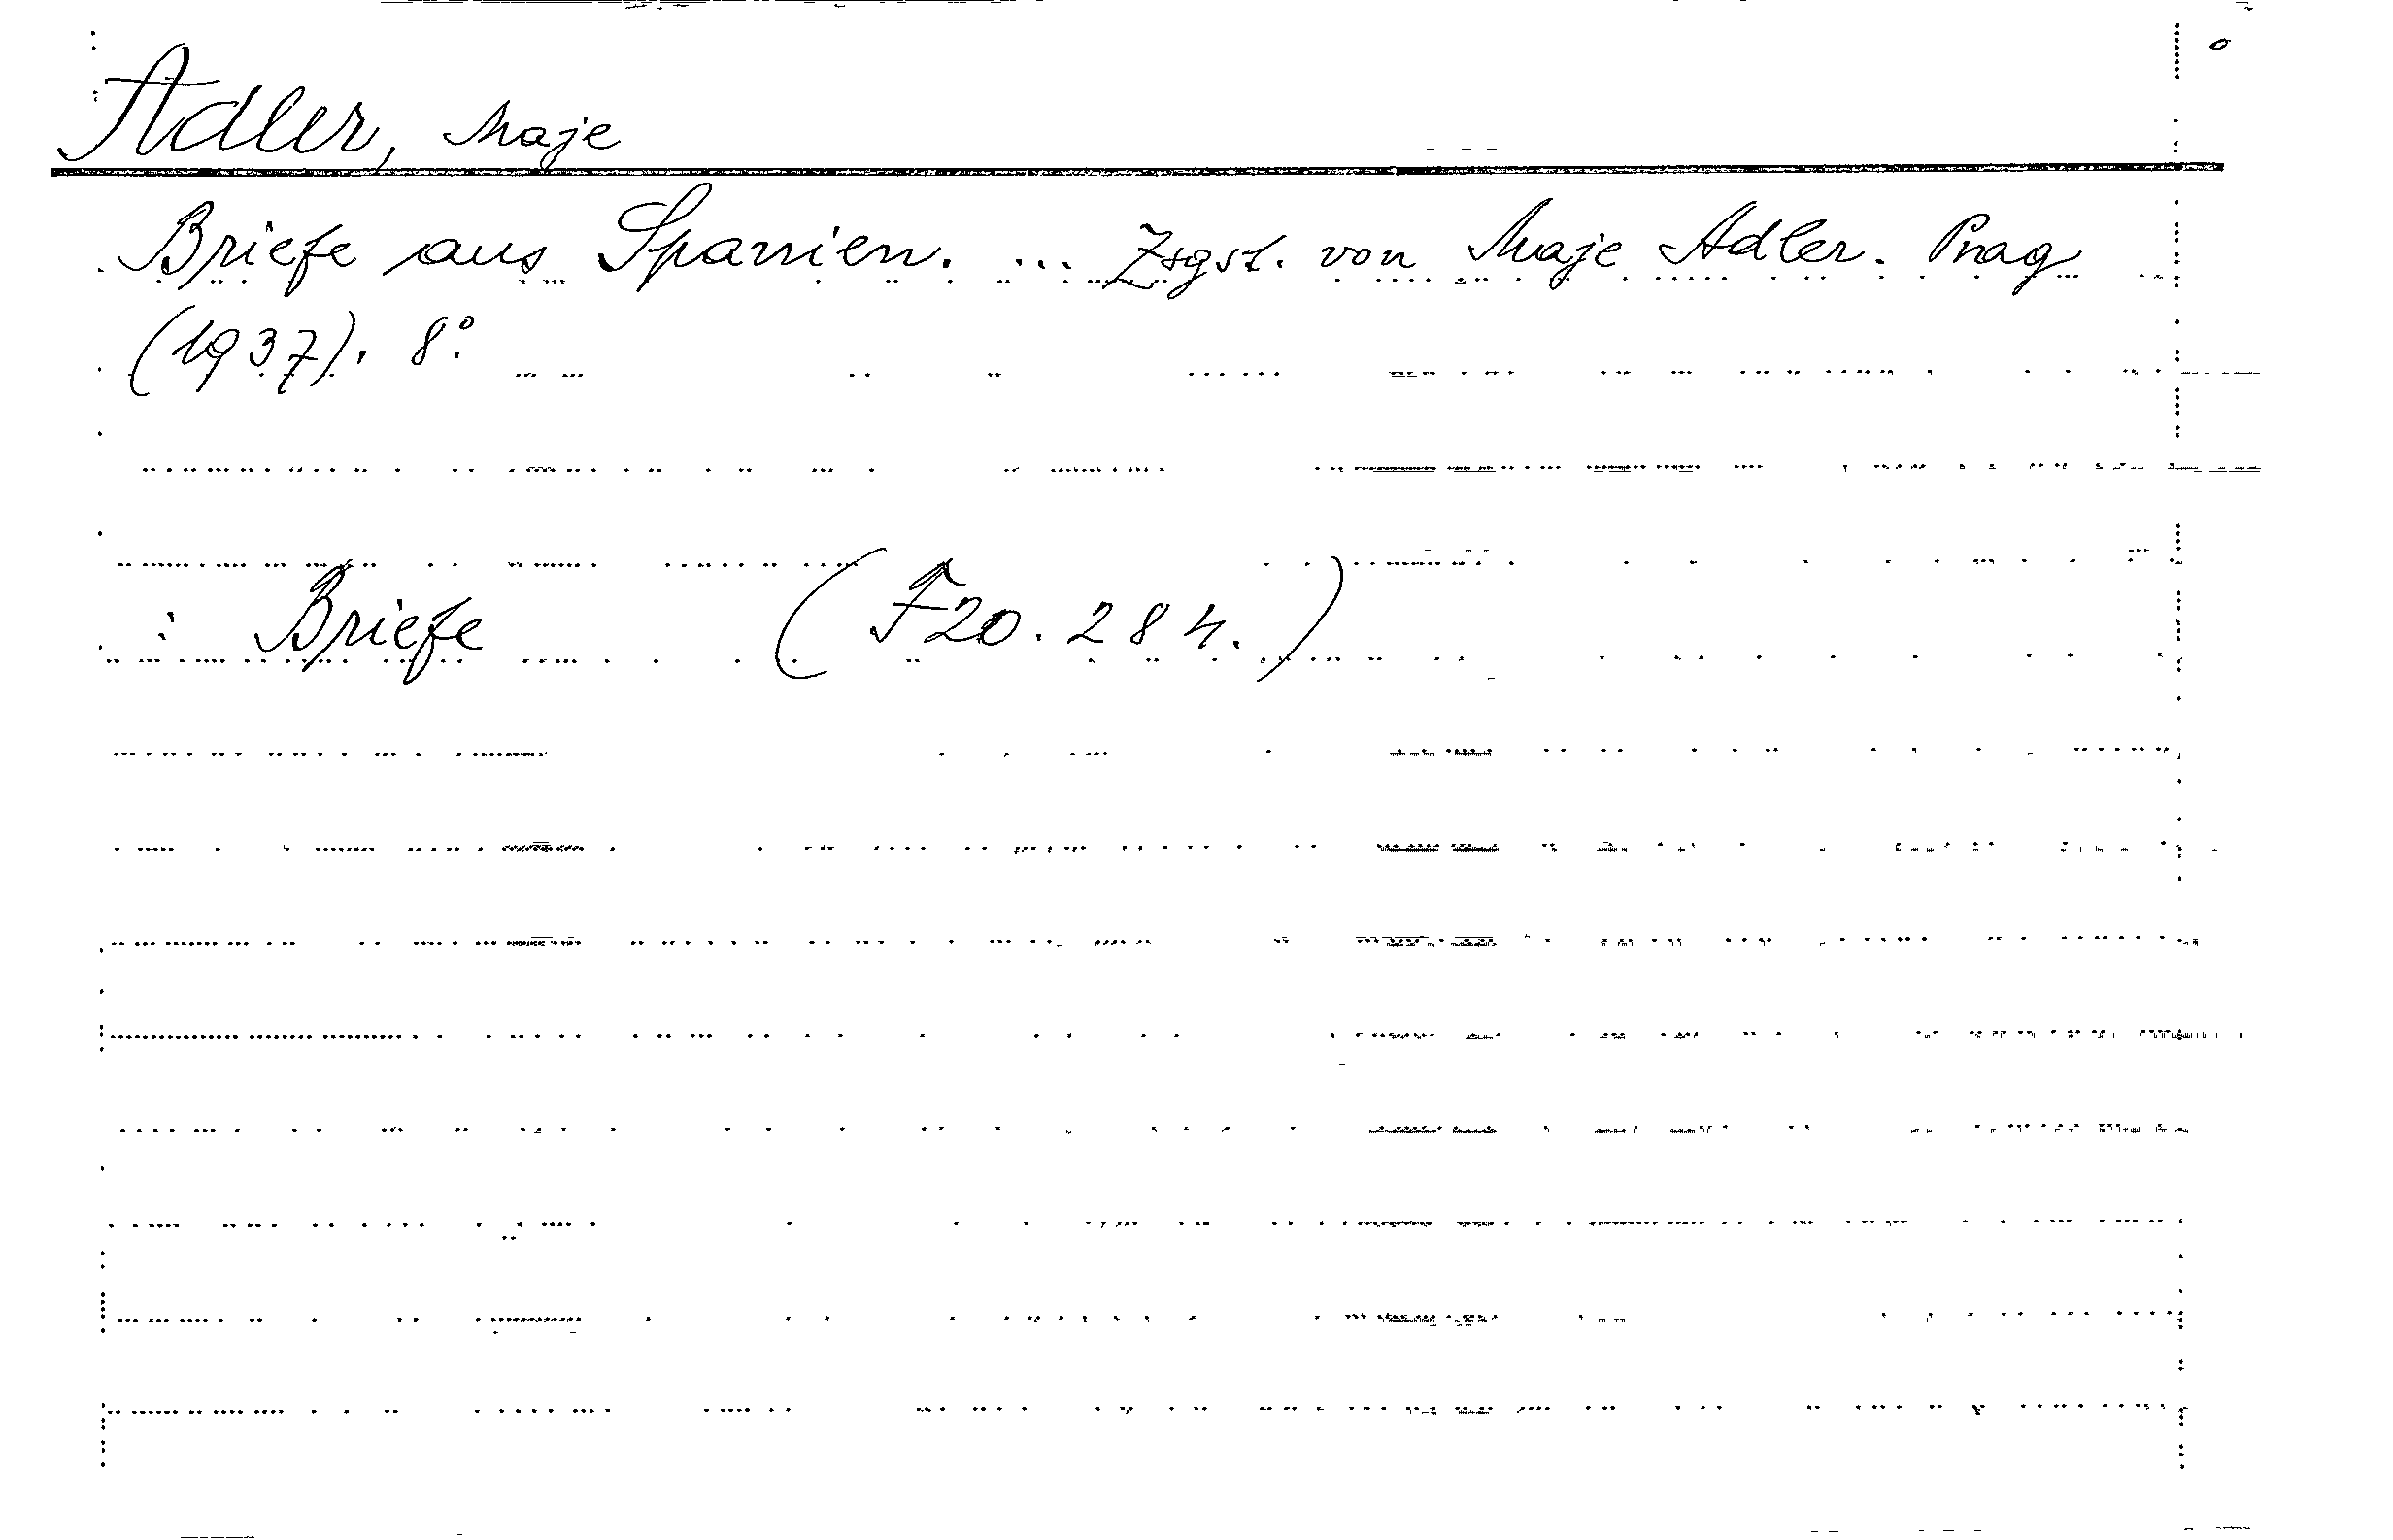 Adler, Maje
Briefe aus Spanien. ... Zsgst. von Maje Adler. Prag
(1937). 8°.
: Briefe (F20.284.)